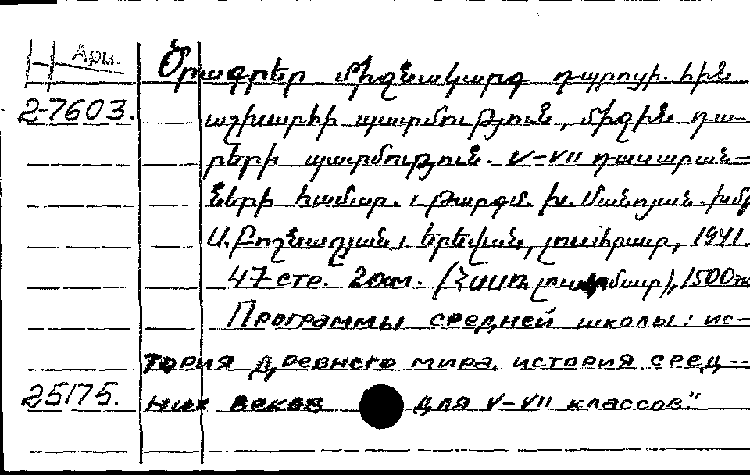 Арм.
Ծրագրեր միջնակարգ դպրոցի. հին
2-7603. աշխարհի պատմություն, միջին դա-
րերի պատմություն. V-VII դասարան-
ների համար. Թարգմ. Խ. Մանոյան. խմբ
Ա. Քոշնազյան. Երևան, 1941.
47 стр. 20см. (ՀՍՍՌ լուսժողկոմատ), 1500
Программы средней школы: ис-
тория древнего мира, история сред-
25175. них веков для V-VII классов."